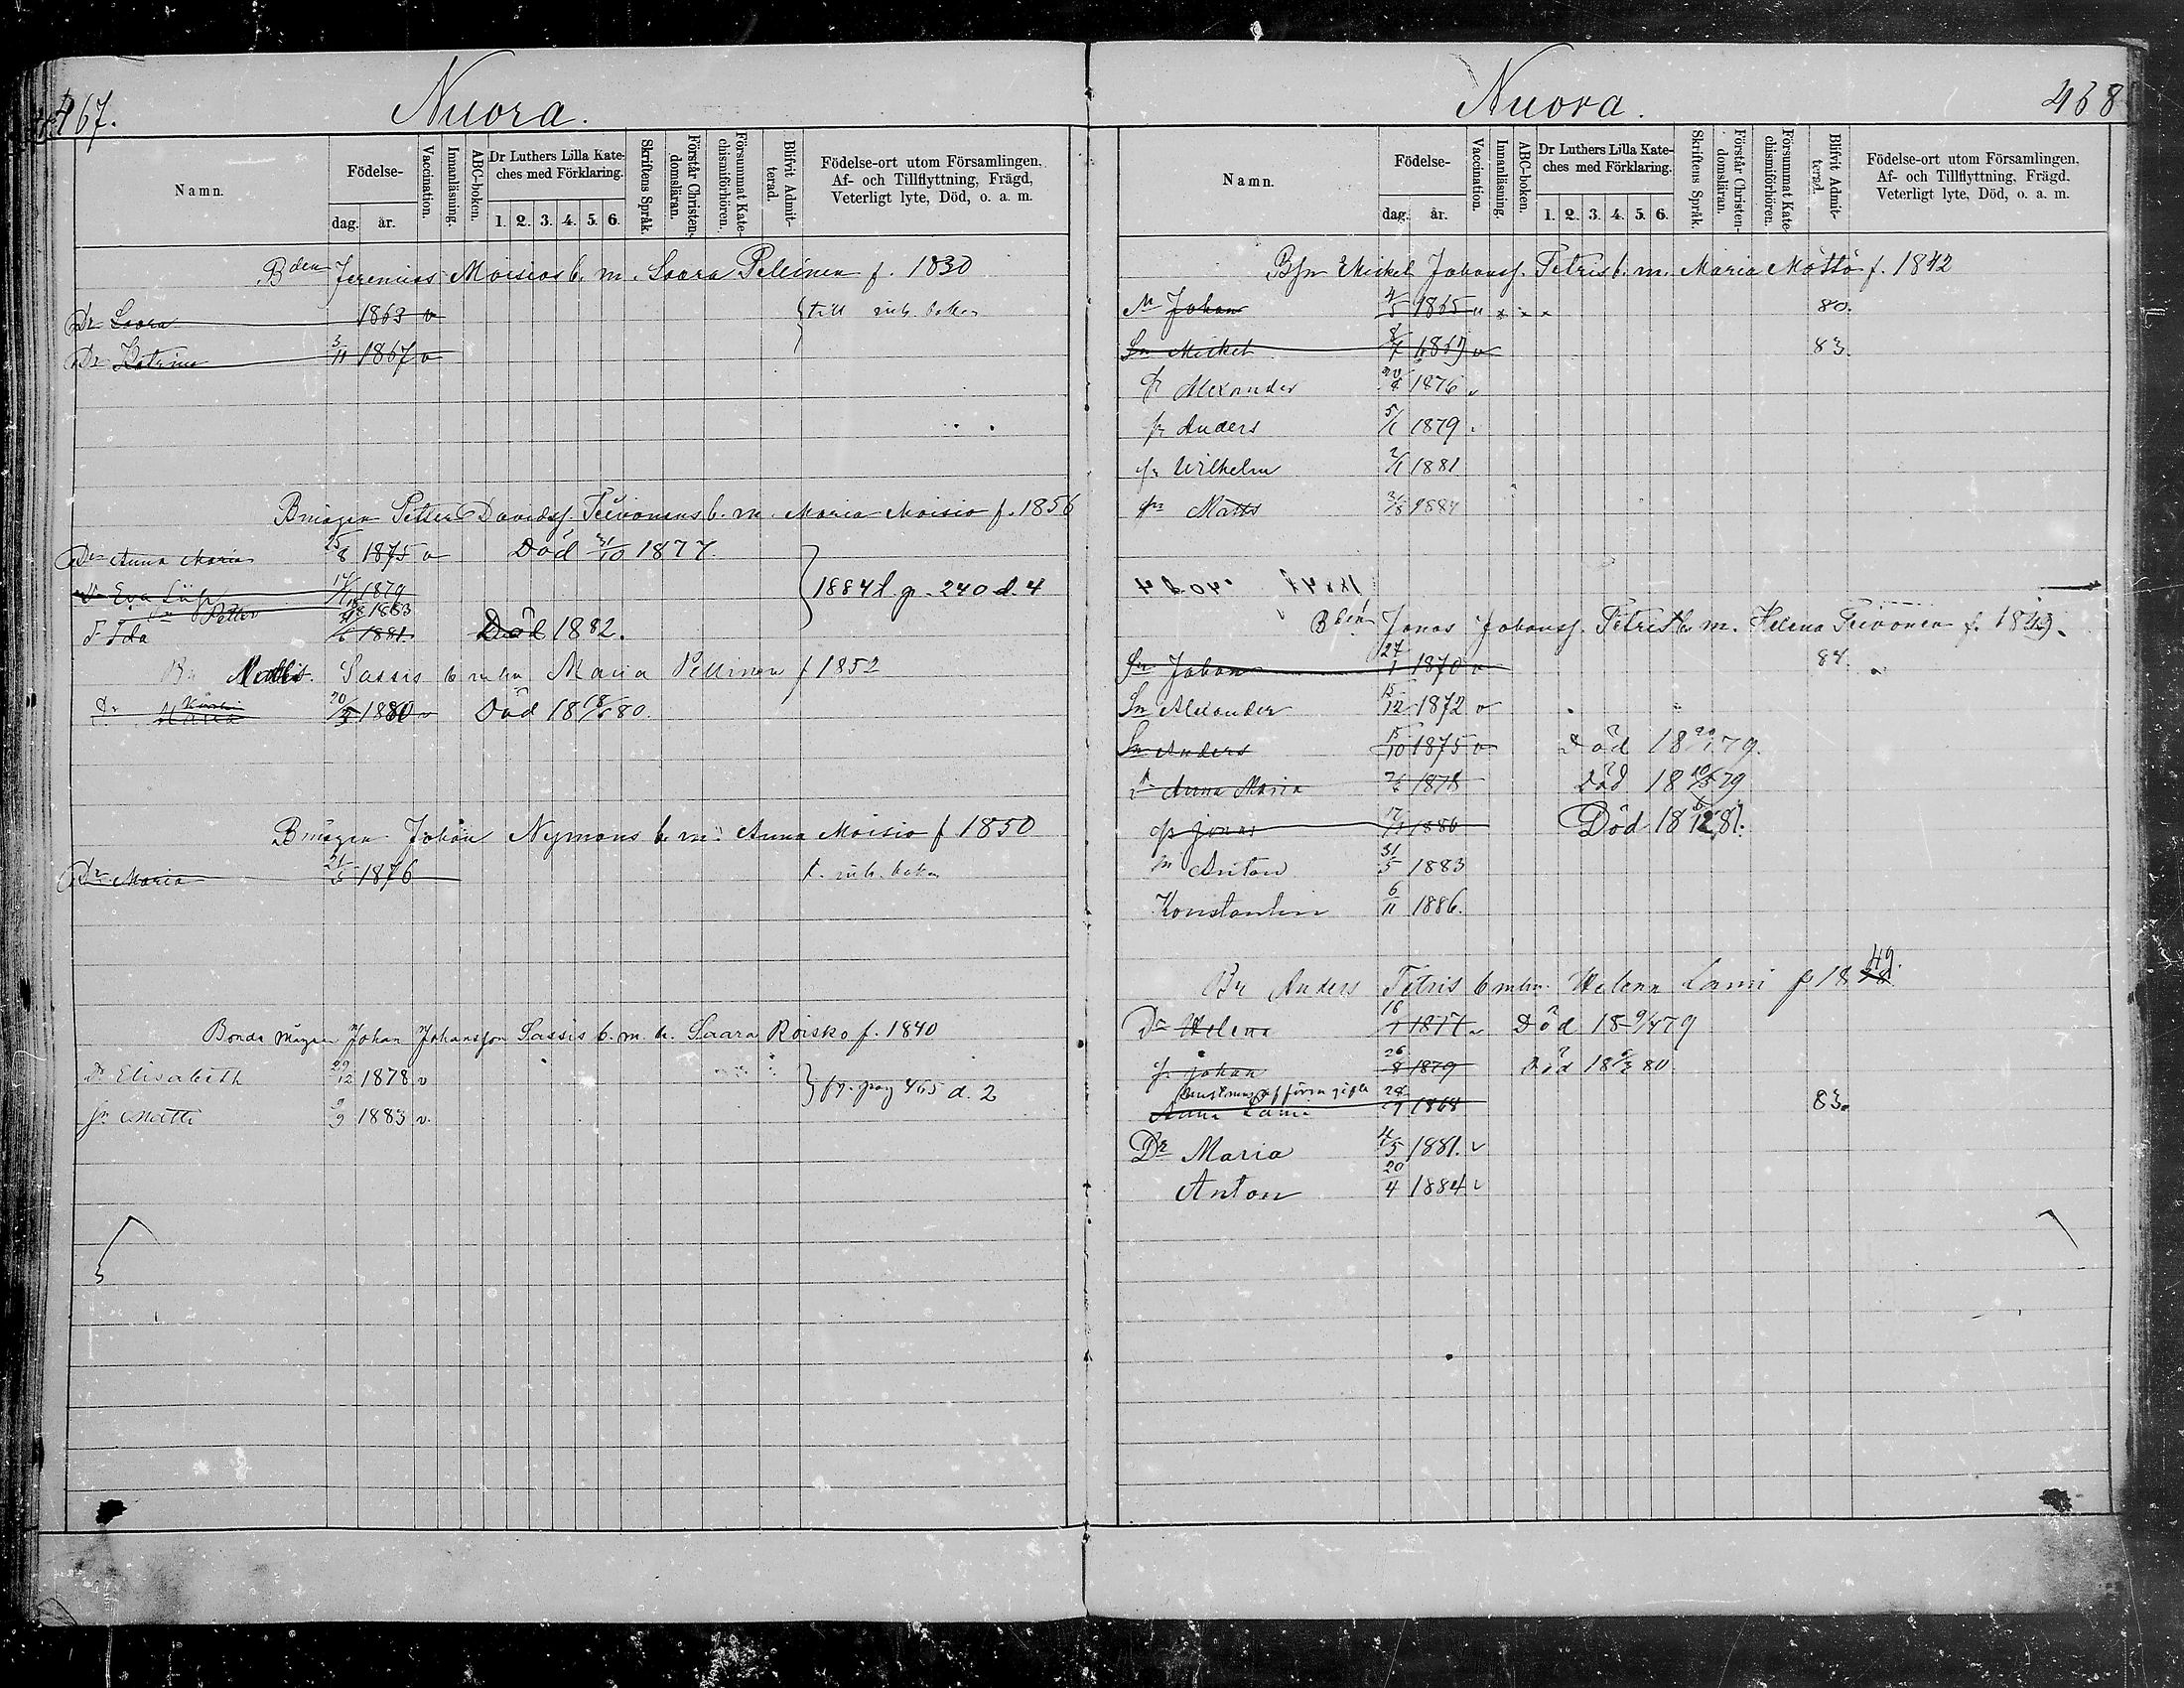 467.
Nuora.
Namn.
Födelse-
dag. år.
Vaccination.
Innanläsning.
ABC-boken.
Dr Luthers Lilla Kate-
ches med Förklaring.
1. 2. 3. 4. 5. 6.
Skriftens Språk.
Förstår Christen-
domsläran.
Försummat Kate-
chismiförhören.
Blifvit Admit-
terad.
Födelse-ort utom Församlingen.
Af- och Tillflyttning, Frägd,
Veterligt lyte, Död, o. a. m.
Bden Jeremias Moisios b. m. Saara Pelinen f. 1830
Dr Saara 1863 v till
Dr Katrina 3/11 1867 v
Bmågen Petter Davidss. Teivonens b. m. Maria Moisio f. 1856
Dr Anna Maria 25/8 1875 v Död 31/10 1877
1884 l. p. 240 d. 4
Dr Eva 1879
Sn Petter 1883
F Ida 1881. Död 1882.
Sassis b m hu Maria Pellinen f 1852
Dr Maria 20/3 1880 v Död 18 80.
Bmågen Johan Nymans b. m. Anna Moisio f 1850
Dr Maria 21/5 1876
Bonde mågen Johan Johansson Sassis b. m. h. Saara Roisko f. 1840
Dr Elisabeth 29/12 1878 v
fr. pag 465 d. 2
Sn Matti 9/9 1883 v.
468
Nuora.
Namn.
Födelse-
dag. år.
Vaccination.
Innanläsning.
ABC-boken.
Dr Luthers Lilla Kate-
ches med Förklaring.
1. 2. 3. 4. 5. 6.
Skriftens Språk.
Förstår Christen-
domsläran.
Försummat Kate-
chismiförhören.
Blifvit Admit-
terad.
Födelse-ort utom Församlingen.
Af- och Tillflyttning, Frägd.
Veterligt lyte, Död, o. a. m.
Bsn Mickel Johanss. Petris b. m. Maria Mottö f. 1842
Sn Johan 4/5 1865 v x x x 80.
Sn Mickel 1867 v 83.
Alexander 1876 v
Anders 5/1 1879
Wilhelm 2/1 1881
Matts 1884
Bden Jonas Johanss. Petris b. m. Helena Teivonen f. 1843.
Sn Johan 27/1 1870 v 84.
Sn Alexander 15/12 1872 v
Sn Anders 15/10 1875 v Död 18 79.
Anna Maria 1878 Död 18 79
Jonas 1880 Död 18 81.
Anton 31/5 1883
Konstantin 6/11 1886.
Anders Petris b m hu. Helena Lami f 18 49.
Dr Helena 16/1 1877 v Död 18 9/4 79
Johan 26/8 1879 Död 18 80
Anna Lami 1868 83.
Dr Maria 4/5 1881. v
Anton 20/4 1884 v